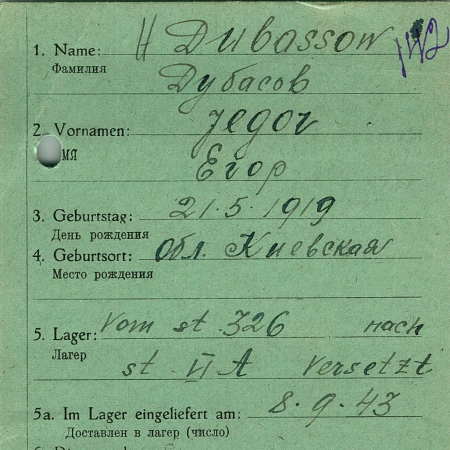 1. Name: Dubassow
Фамилия Дубасов
2. Vornamen: Jegor
ИМЯ Егор
3. Geburtstag: 21.5.1919
День рождения
4. Geburtsort: Обл. Киевская
Место рождения
5. Lager: Vom st. 326 nach
Лагерь st. VI A versetzt
5a. Im Lager eingeliefert am: 8.9.43
Доставлен в лагерь (число)